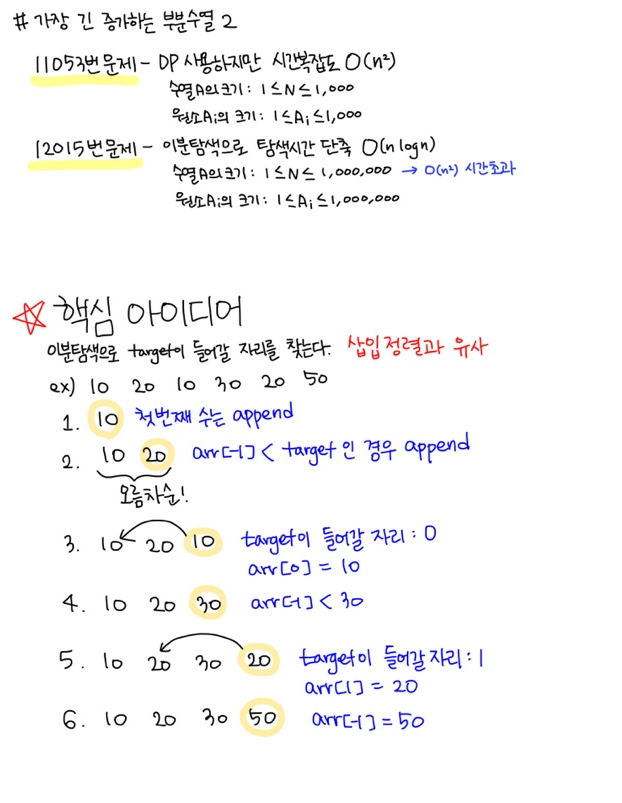 # 가장 긴 증가하는 부분수열 2
11053번문제 - DP 사용하지만 시간복잡도 O(n²)
수열A의크기: 1≤N≤1,000
원소Ai의 크기: 1≤Ai≤1,000
12015번문제 - 이분탐색으로 탐색시간 단축 O(nlogn)
수열A의크기: 1≤N≤1,000,000 → O(n²) 시간초과
원소Ai의 크기: 1≤Ai≤1,000,000
☆ 핵심 아이디어
이분탐색으로 target이 들어갈 자리를 찾는다. 삽입정렬과 유사
ex) 10 20 10 30 20 50
1. 10 첫번째 수는 append
2. 10 20 arr[-1] < target 인 경우 append
오름차순!
3. 10 20 10 target이 들어갈 자리: 0
arr[0] = 10
4. 10 20 30 arr[-1] < 30
5. 10 20 30 20 target이 들어갈 자리: 1
arr[1] = 20
6. 10 20 30 50 arr[-1] = 50